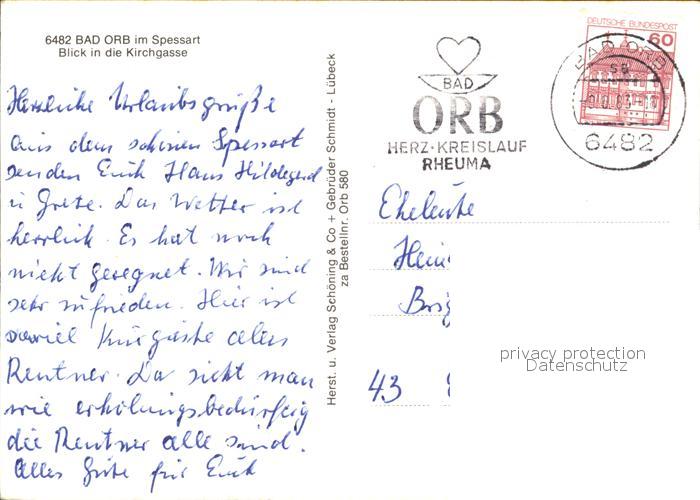 6482 BAD ORB im Spessart
Blick in die Kirchgasse
Herzliche Urlaubsgrüße
aus dem schönen Spessart
senden Euch Hans Hildegard
u Grete. Das Wetter ist
herrlich. Es hat noch
nicht geregnet. Wir sind
sehr zufrieden. Hier ist
soviel Kurgäste alles
Rentner. Da sieht man
wie erholungsbedürftig
die Rentner alle sind.
Alles Gute für Euch
Herst. u. Verlag Schöning & Co + Gebrüder Schmidt - Lübeck
za Bestellnr. Orb 580
BAD
ORB
HERZ-KREISLAUF
RHEUMA
DEUTSCHE BUNDESPOST
60
BAD ORB
6482
Eheleute
Hein
43
privacy protection
Datenschutz